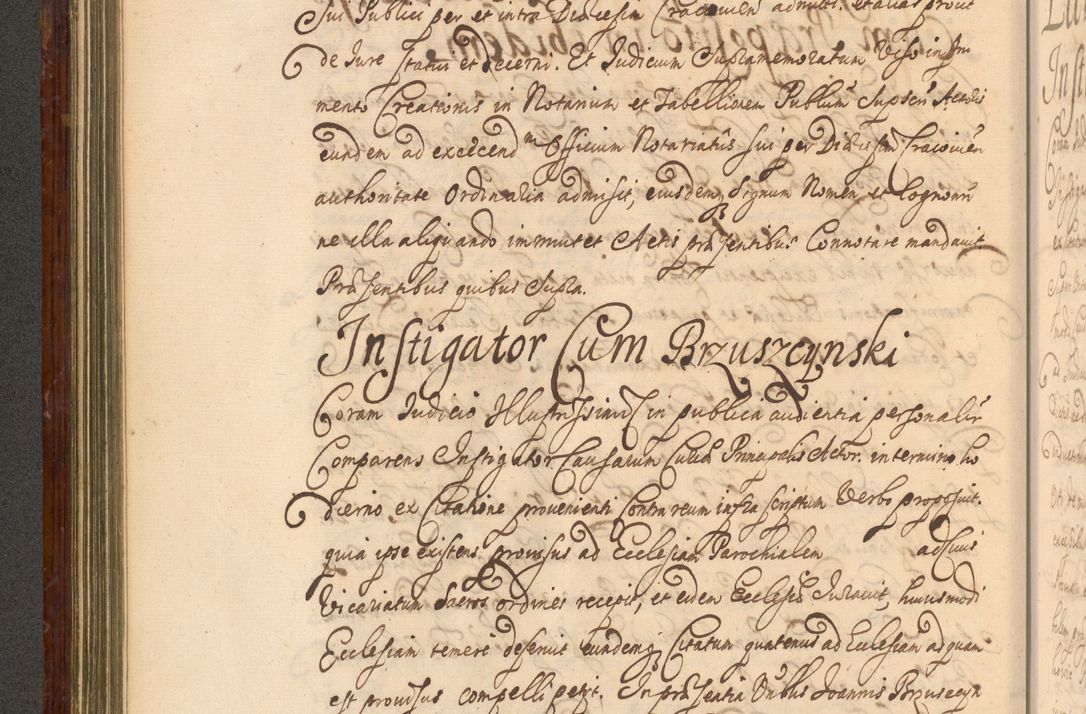 Sui Publici per et intra Diœcesin Cracovien admitti. et alias prout
de Jure statui et decerni. Et Judicium Supramemoratum Viso instru
mento Creationis in Notarium et Tabellionem Publicum supscti Actoris
eundem ad exercendm Officium Notariatus sui per Diœcesim Cracovien
authoritate Ordinaria admisit, eiusdem Signum Nomen et Cognomi
ne illa aliquando immutet Actis præsentibus Connotare mandavit.
Præsentibus quibus Supra.
Instigator Cum Brzuszcynski
Coram Judicio Illustrissimi in publica audientia personalir
Comparens Instigator Causarum Curiæ Principalis Actor. in termino ho
dierno ex Citatione provenienti Contra reum infra scriptum Verbo proposuit.
quia ipse existens provisus ad Ecclesiam Parochialem adsuus
Vicariatum Sacros ordines recepit, et eidem Ecclesiæ Juravit, huiusmodi
Ecclesiam temere deseruit eundemq Citatum quatenus ad Ecclesiam ad quam
est provisus compelli petyt. In præsentia Vnblis Joannis Brzusecyn